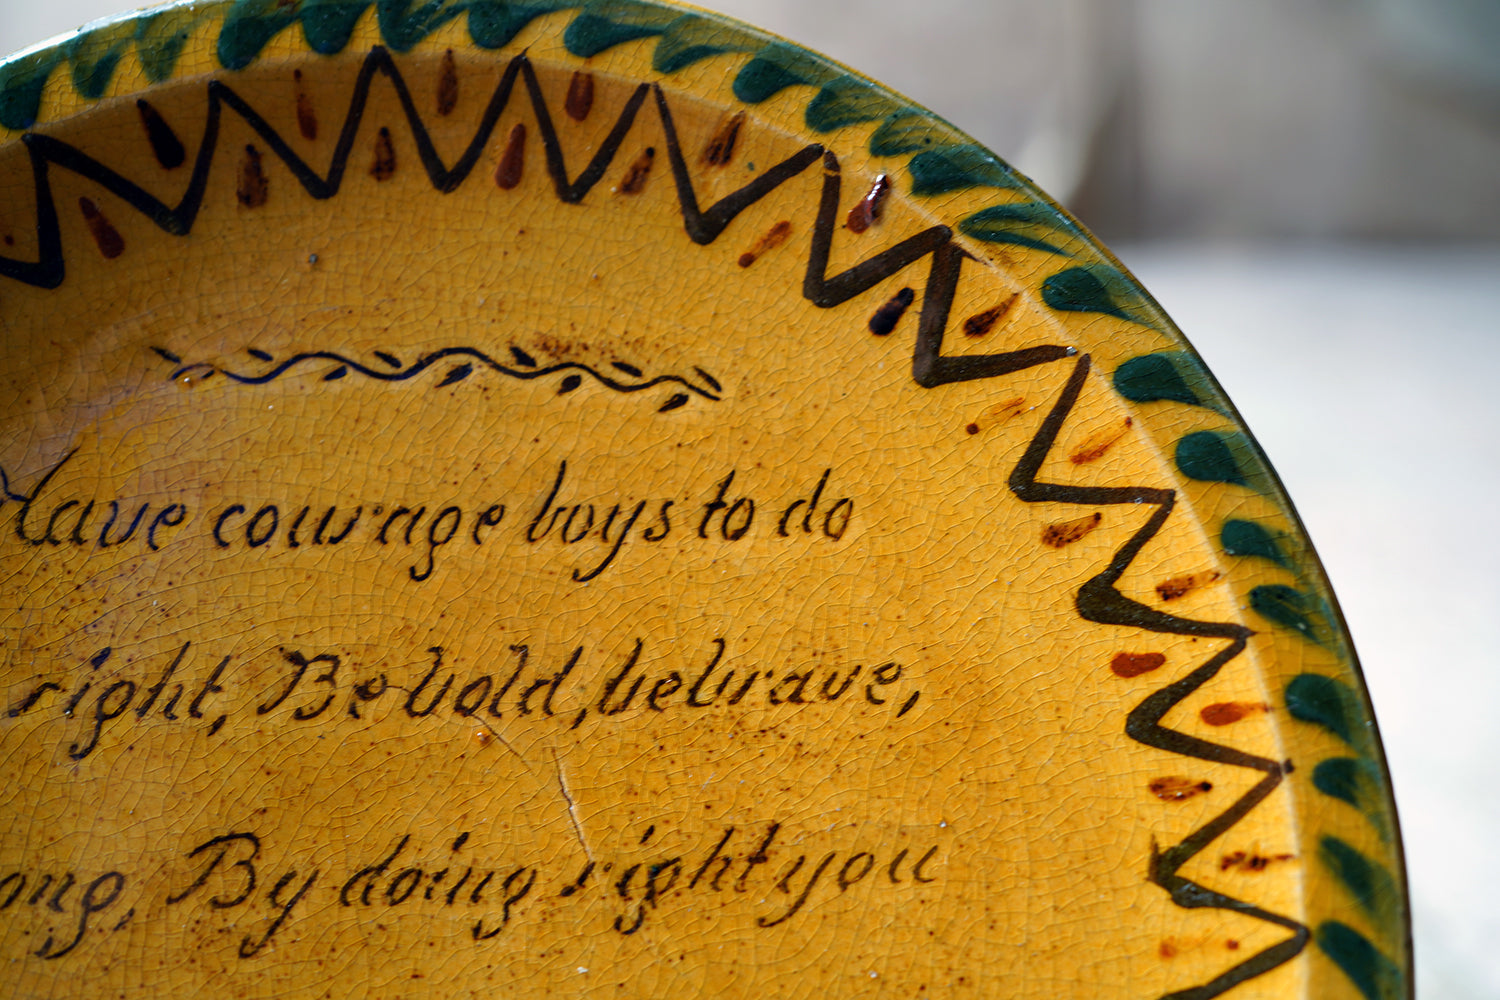 Have courage boys to do
right, Be bold, be brave,
ong, By doing right you